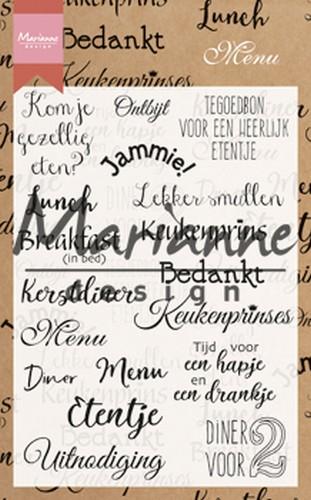 Lunch
Marianne
design
Bedankt
Menu
Keukenprinses
Kom je
gezellig
eten?
Ontbijt
TEGOEDBON
VOOR EEN HEERLIJK
ETENTJE
Jammie!
Lunch
Lekker smullen
Marianne
design
Keukenprins
Breakfast
(in bed)
Bedankt
Kerstdiner
Keukenprinses
Menu
Tijd voor
een hapje
en
een drankje
Diner
Menu
Etentje
DINER
VOOR 2
Uitnodiging